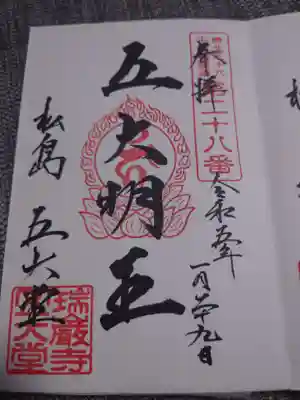 奉拝
第二十八番
令和五年
一月廿九日
五大明王
松島 五大堂
瑞巌寺
五大堂